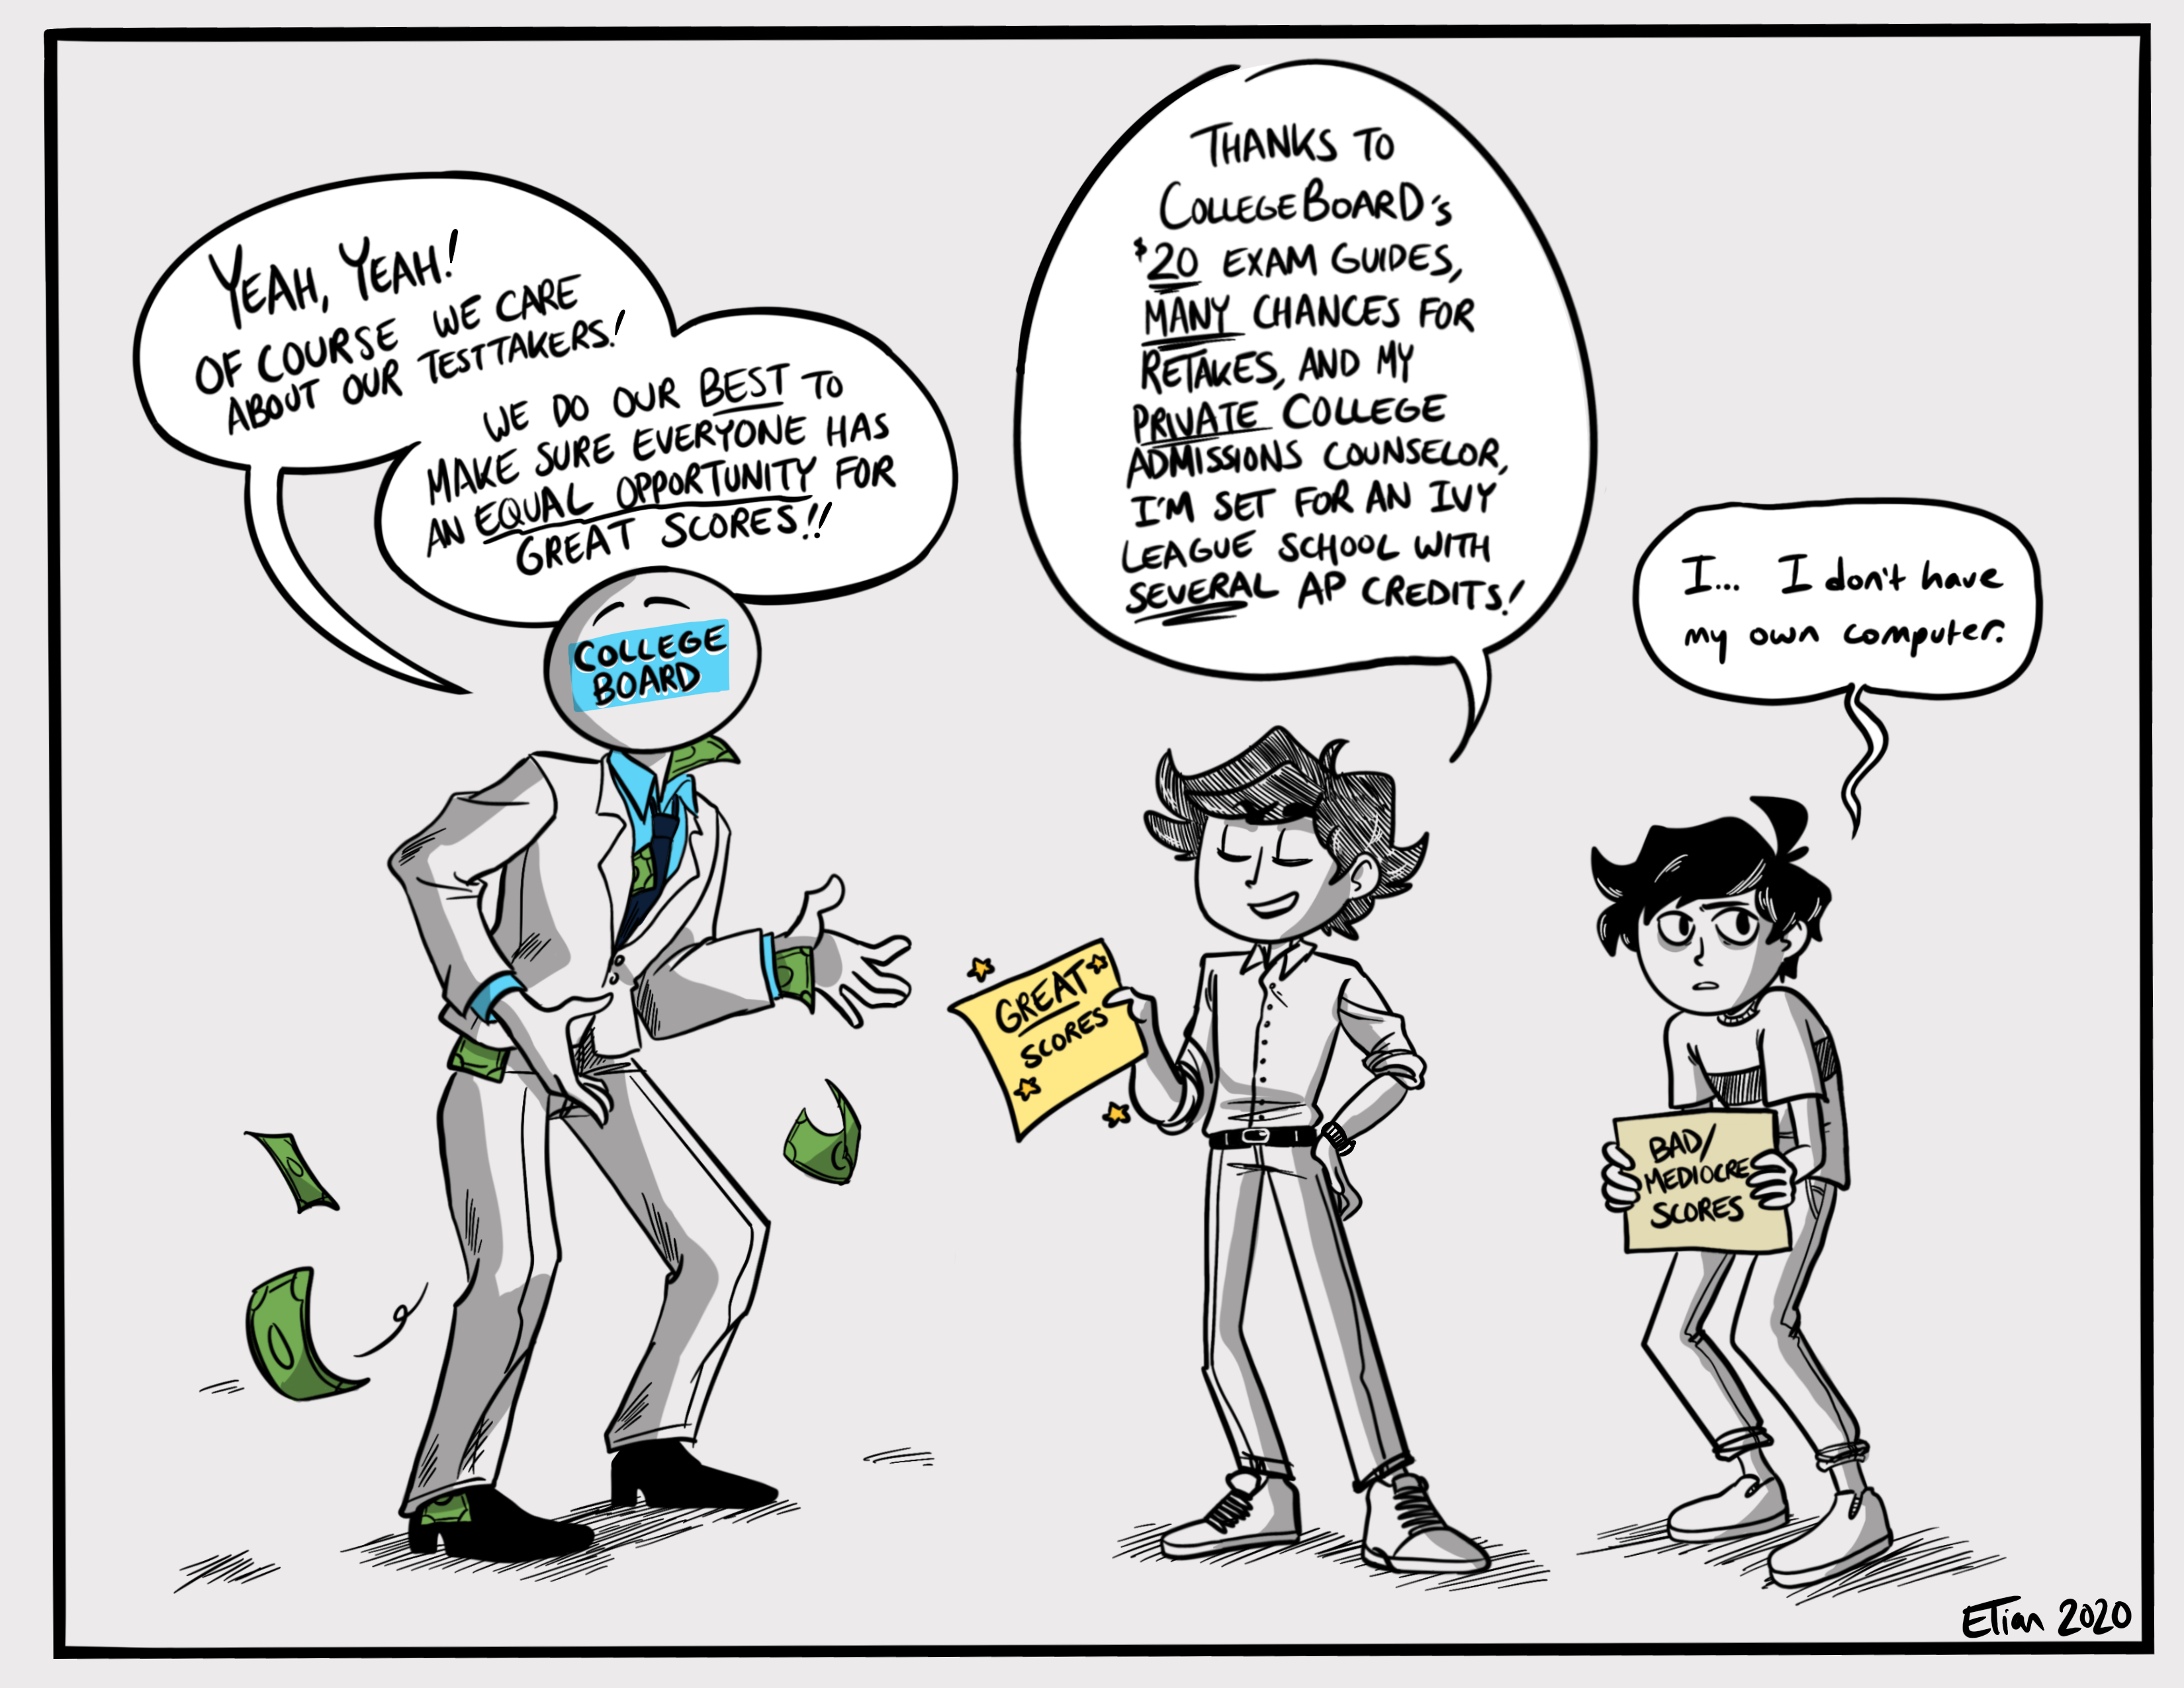 YEAH, YEAH!
OF COURSE WE CARE
ABOUT OUR TESTTAKERS!
WE DO OUR BEST TO
MAKE SURE EVERYONE HAS
AN EQUAL OPPORTUNITY FOR
GREAT SCORES!!
COLLEGE
BOARD
THANKS TO
COLLEGEBOARD'S
$20 EXAM GUIDES,
MANY CHANCES FOR
RETAKES, AND MY
PRIVATE COLLEGE
ADMISSIONS COUNSELOR,
I'M SET FOR AN IVY
LEAGUE SCHOOL WITH
SEVERAL AP CREDITS!
GREAT
SCORES
I... I don't have
my own computer.
BAD/
MEDIOCRE
SCORES
ETian 2020